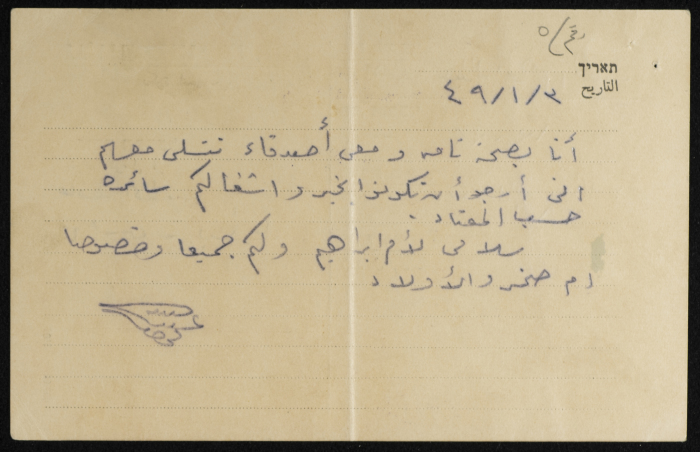 رقم / ٥
תאריך
التاريخ
٤٩/١/٣
أنا بصحة تامه ومعي أصدقاء نتسلى معهم
انني أرجو أن تكونوا بخير واشغالكم سائره
حسب المعتاد.
سلامي لأم ابراهيم ولكم جميعا وخصوصا
ام صخر والأولاد